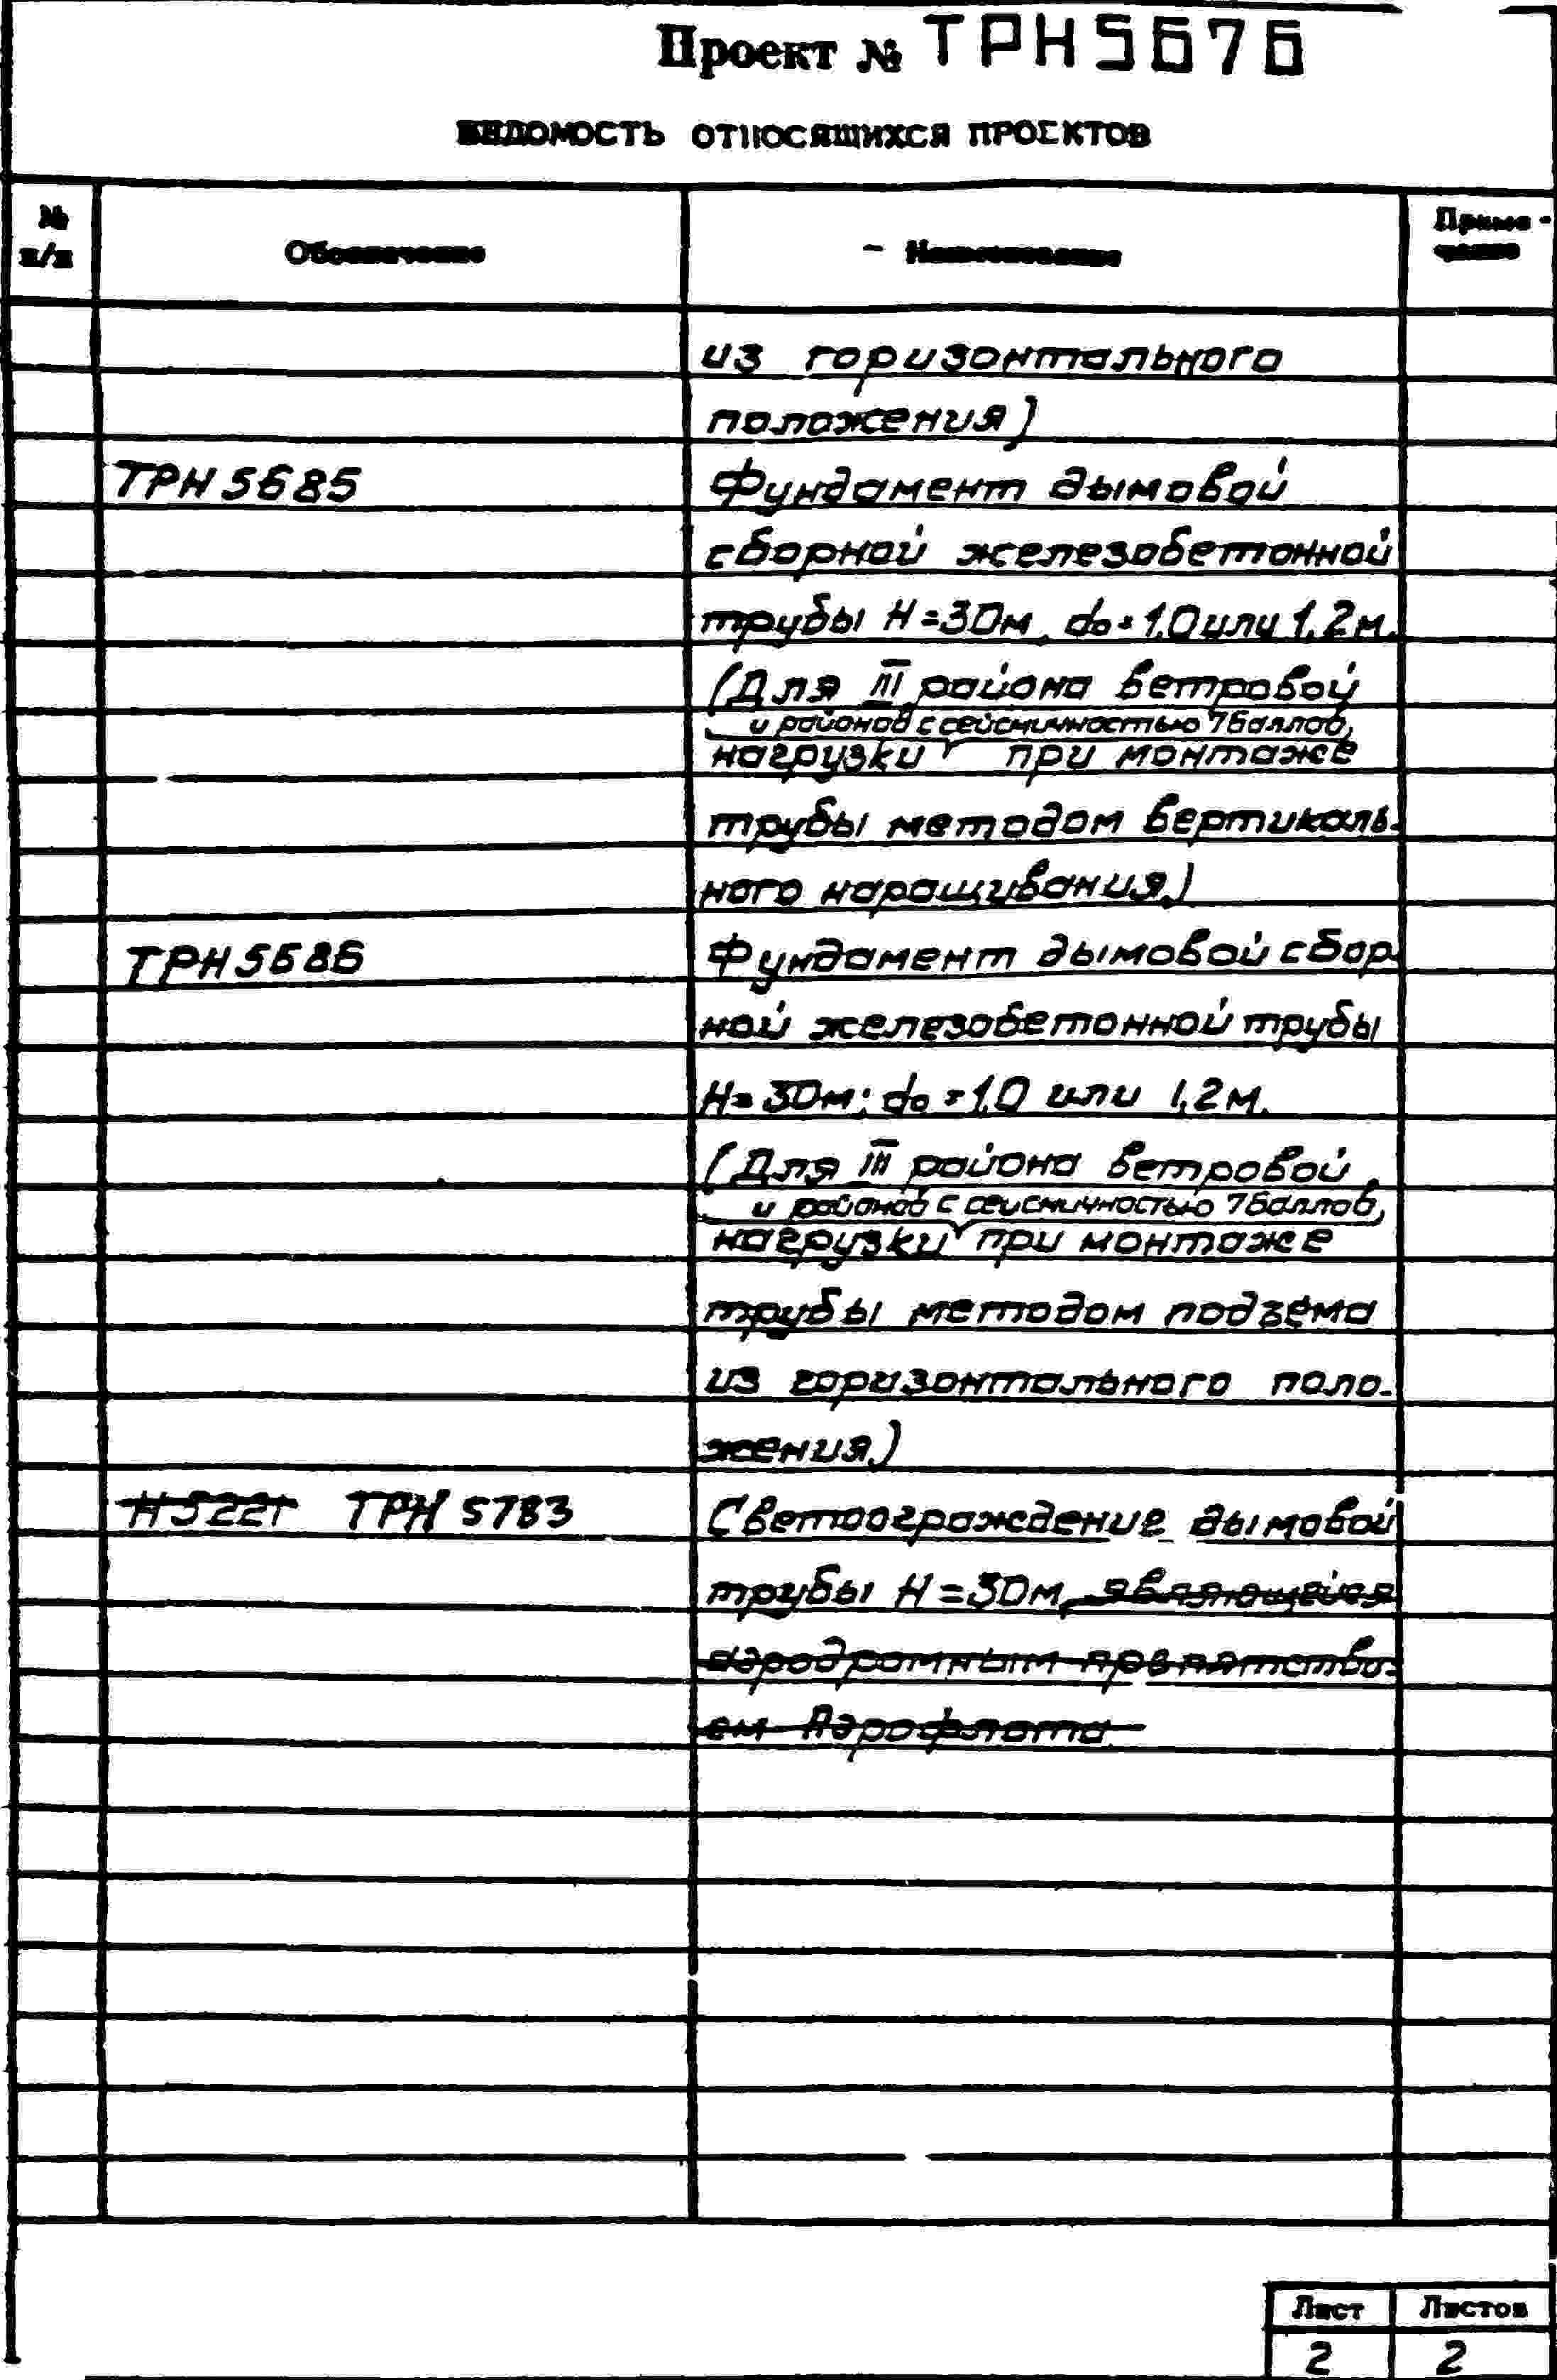 Проект № ТРН5676
ВЕДОМОСТЬ ОТНОСЯЩИХСЯ ПРОЕКТОВ
№ п/п Обозначение Наименование Примечание
из горизонтального
положения)
ТРН 5685 Фундамент дымовой
сборной железобетонной
трубы Н=30м, do=1,0 или 1,2м.
(Для III района ветровой
и районов с сейсмичностью 7баллов,
нагрузки при монтаже
трубы методом вертикаль-
ного наращивания.)
ТРН 5686 Фундамент дымовой сбор-
ной железобетонной трубы
Н=30м; do=1,0 или 1,2м.
(Для III района ветровой
и районов с сейсмичностью 7баллов,
нагрузки при монтаже
трубы методом подъема
из горизонтального поло-
жения.)
Н 5221 ТРН 5783 Светоограждение дымовой
трубы Н=30м, являющейся
аэродромным препятстви-
ем Аэрофлота.
Лист Листов
2 2